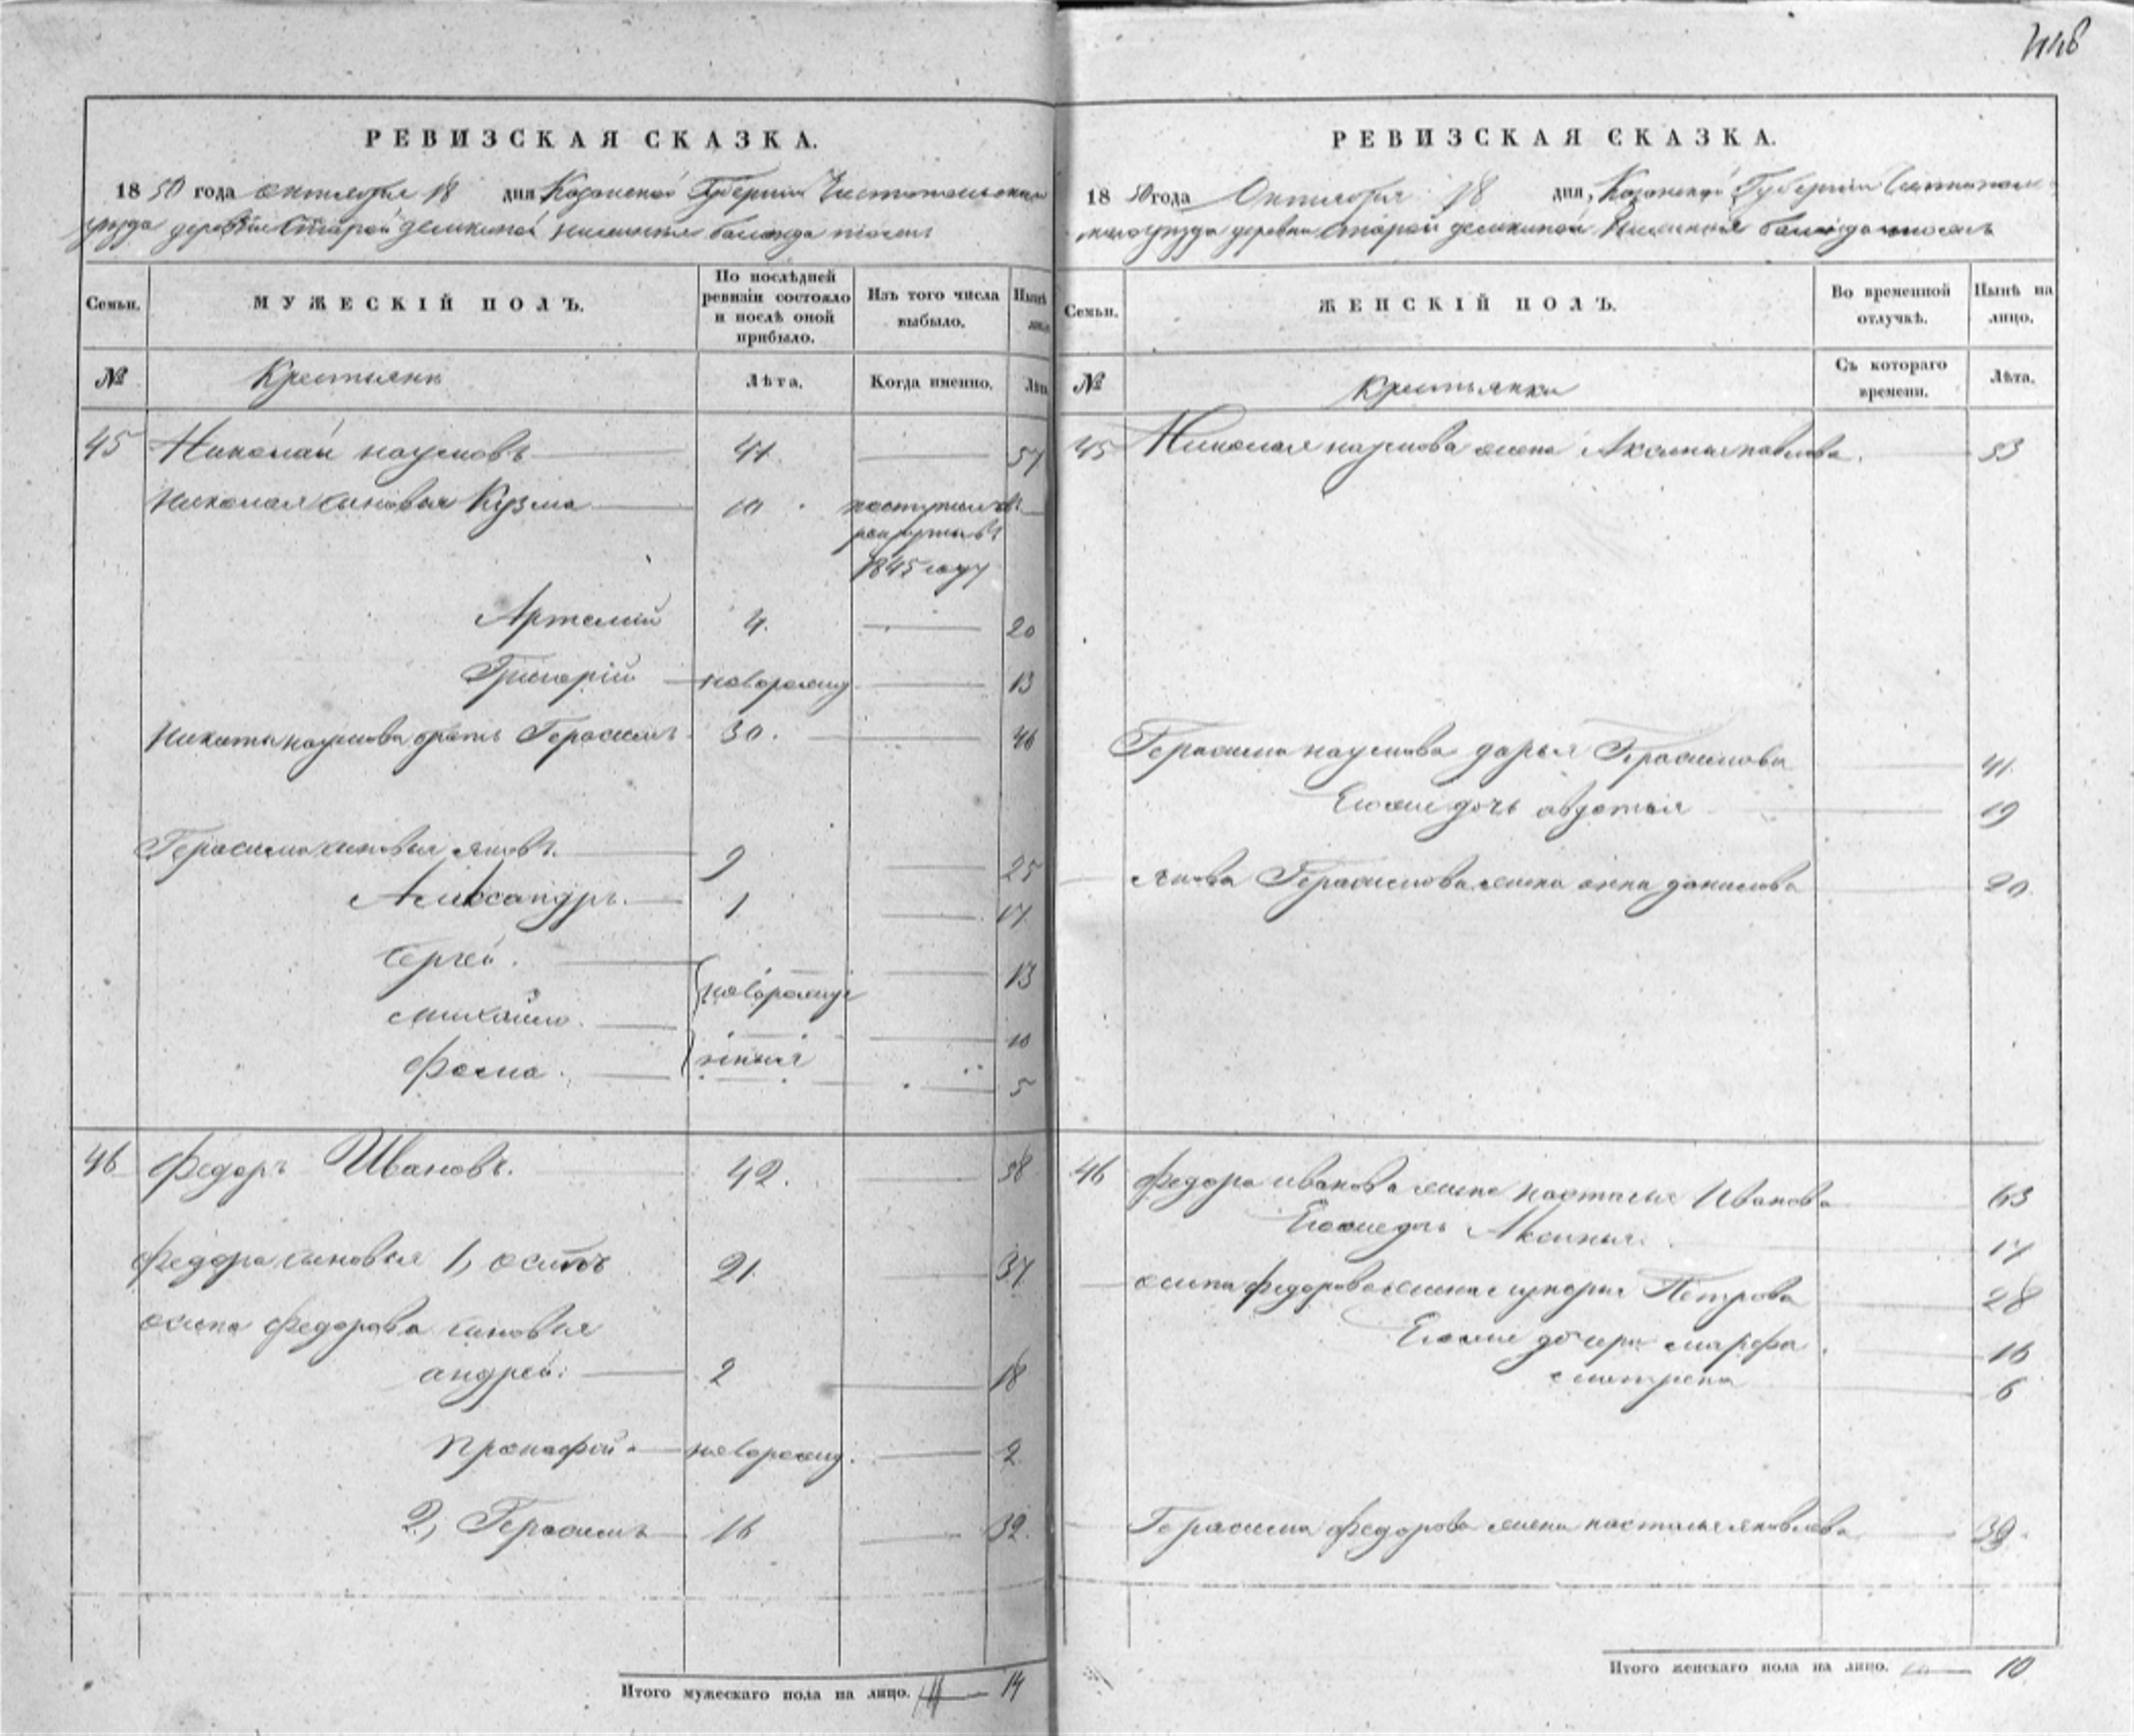 448
РЕВИЗСКАЯ СКАЗКА.
1850 года октября 18 дня Казанской Губернии Чистопольскаго
уезда деревни Старой
Семьи.
МУЖЕСКІЙ ПОЛЪ.
По послѣдней ревизіи состояло и послѣ оной прибыло.
Изъ того числа выбыло.
Нынѣ
№
Крестьяне
Лѣта.
Когда именно.
Лѣта
45 Николай наумовъ 41 57
Николая сыновья Кузма 10 поступилъ въ
рекруты въ
1845 году
Артемий 4 20
Григорій новорожд 13
наумова братъ Герасимъ 30. 46
Герасима сыновья яковъ. 9 25
Александръ. 1 17
Сергей. новорожде 13
михайло. 10
фома. нныя 5
46 федоръ Ивановъ. 42. 58
федора сыновья 1, осипъ 21 37
осипа федорова сыновья
андрей. 2 18
Прокофей новорожд. 2
2, Герасимъ 16 32.
Итого мужескаго пола на лицо. 14
РЕВИЗСКАЯ СКАЗКА.
1850 года Октября 18 дня, Казанской Губернии Чистополь
скаго уезда деревни старой
Семьи.
ЖЕНСКІЙ ПОЛЪ.
Во временной отлучкѣ.
Нынѣ на лицо.
№
крестьянки
Съ котораго времени.
Лѣта.
45 Николая наумова жена Аксинья павлова. 53
Герасима наумова дарья Герасимова 41
Егоже дочь авдотья 19
якова Герасимова жена анна данилова 20
46 федора иванова жена настасья Иванова 63
Егоже дочь Аксинья. 17
осипа федорова жена Петрова 28
Егоже дочери марфа. 16
6
Герасима федорова жена настасья яковлева 39.
Итого женскаго пола на лицо. 10